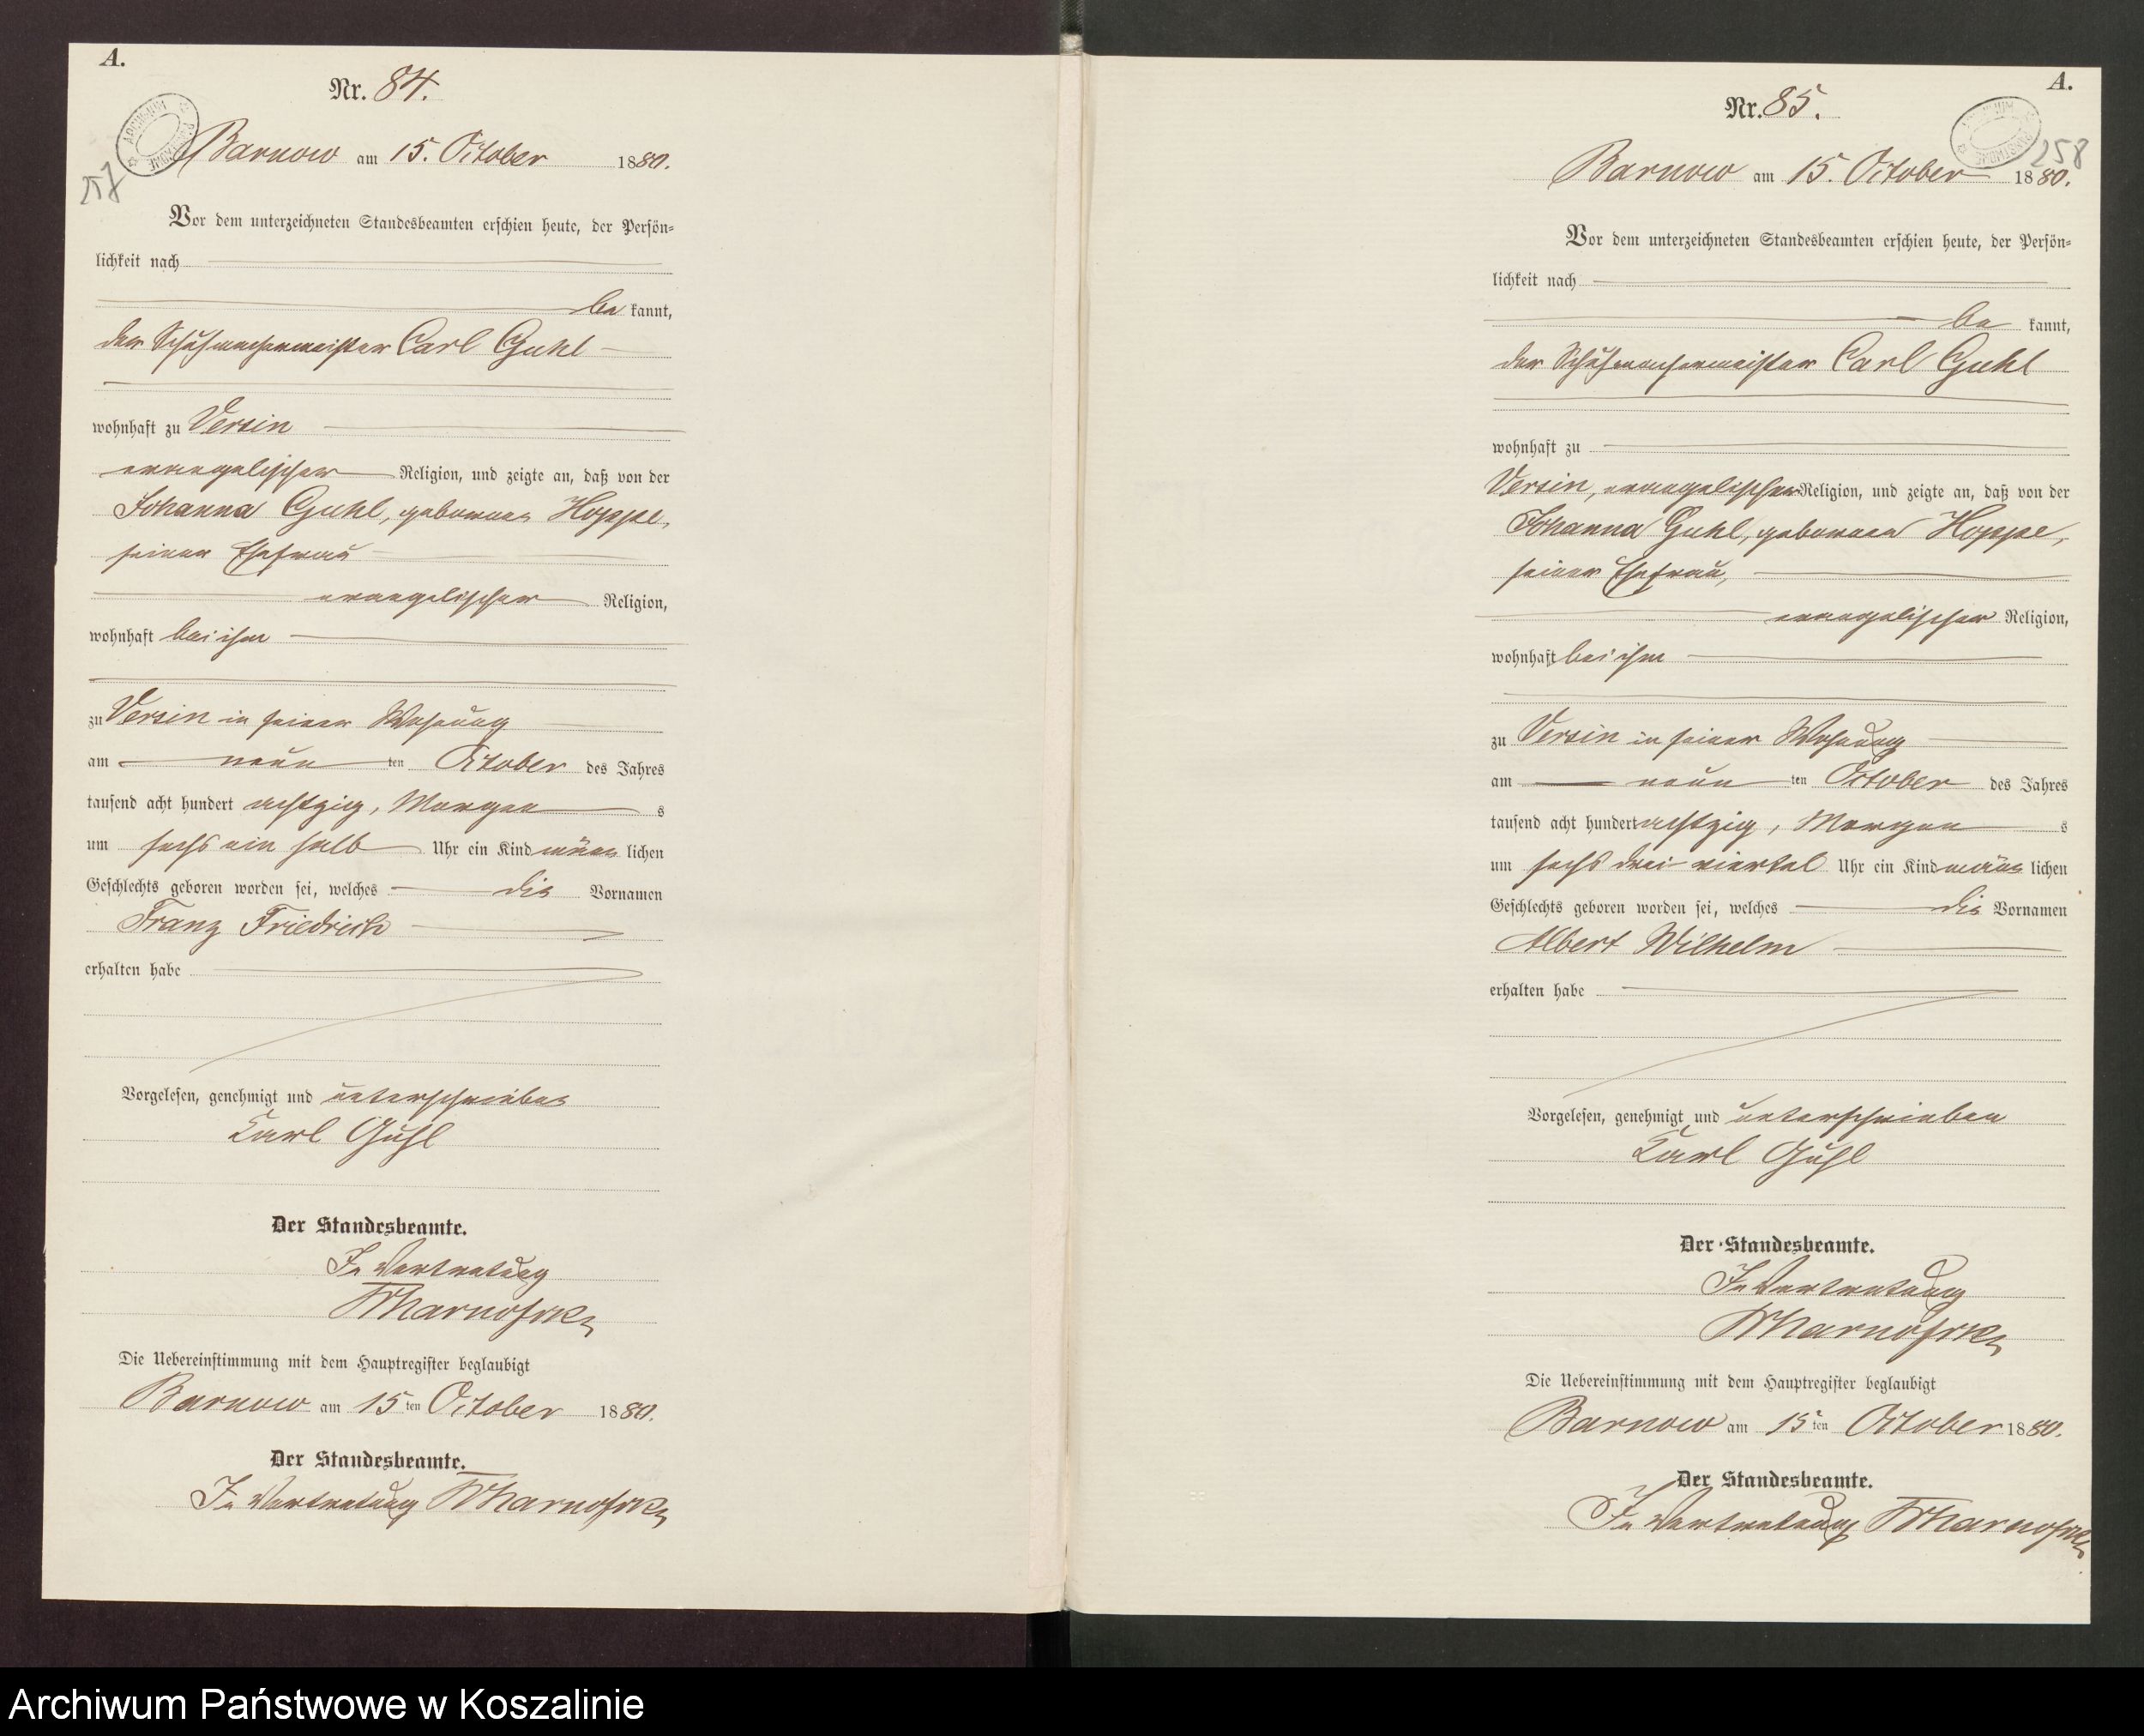 A.
Nr. 84.
257
Barnow am 15. October 1880.
Vor dem unterzeichneten Standesbeamten erschien heute, der Persön=
lichkeit nach
be kannt,
der Schuhmachermeister Carl Guhl
wohnhaft zu Versin
evangelischer Religion, und zeigte an, daß von der
Johanna Guhl, geborenen Hoppe,
seiner Ehefrau
evangelischer Religion,
wohnhaft bei ihm
zu Versin in seiner Wohnung
am neun ten October des Jahres
tausend acht hundert achtzig, Morgen s
um sechs ein halb Uhr ein Kind männ lichen
Geschlechts geboren worden sei, welches die Vornamen
Franz Friedrich
erhalten habe
Vorgelesen, genehmigt und unterschrieben
Karl Guhl
Der Standesbeamte.
In Vertretung
Die Uebereinstimmung mit dem Hauptregister beglaubigt
Barnow am 15 ten October 1880.
Der Standesbeamte.
In Vertretung
A.
Nr. 85.
258
Barnow am 15. October 1880.
Vor dem unterzeichneten Standesbeamten erschien heute, der Persön=
lichkeit nach
be kannt,
der Schuhmachermeister Carl Guhl
wohnhaft zu
Versin, evangelischer Religion, und zeigte an, daß von der
Johanna Guhl, geborenen Hoppe,
seiner Ehefrau,
evangelischer Religion,
wohnhaft bei ihm
zu Versin in seiner Wohnung
am neun ten October des Jahres
tausend acht hundert achtzig, Morgen s
um sechs drei viertel Uhr ein Kind männ lichen
Geschlechts geboren worden sei, welches die Vornamen
Albert Wilhelm
erhalten habe
Vorgelesen, genehmigt und unterschrieben
Karl Guhl
Der Standesbeamte.
In Vertretung
Die Uebereinstimmung mit dem Hauptregister beglaubigt
Barnow am 15 ten October 1880.
Der Standesbeamte.
In Vertretung
Archiwum Państwowe w Koszalinie